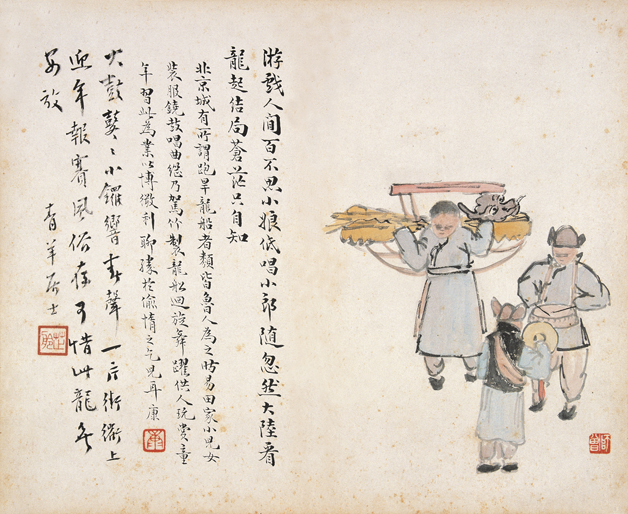 游戲人間百不思小娘低唱小郎隨忽然大陸看
龍起結局蒼茫只自知
北京城有所謂跑旱龍船者類皆魯人為之時易田家小兒女
裝服鐃鼓唱曲繼乃駕竹製龍船迴旋舞躍供人玩賞童
年習此為業以博微利聊勝於偷惰之乞兒耳 康
火鼓鼕〻小鑼響春聲一片街衢上
迎年報賽風俗存可惜此龍
安放 青羊居士